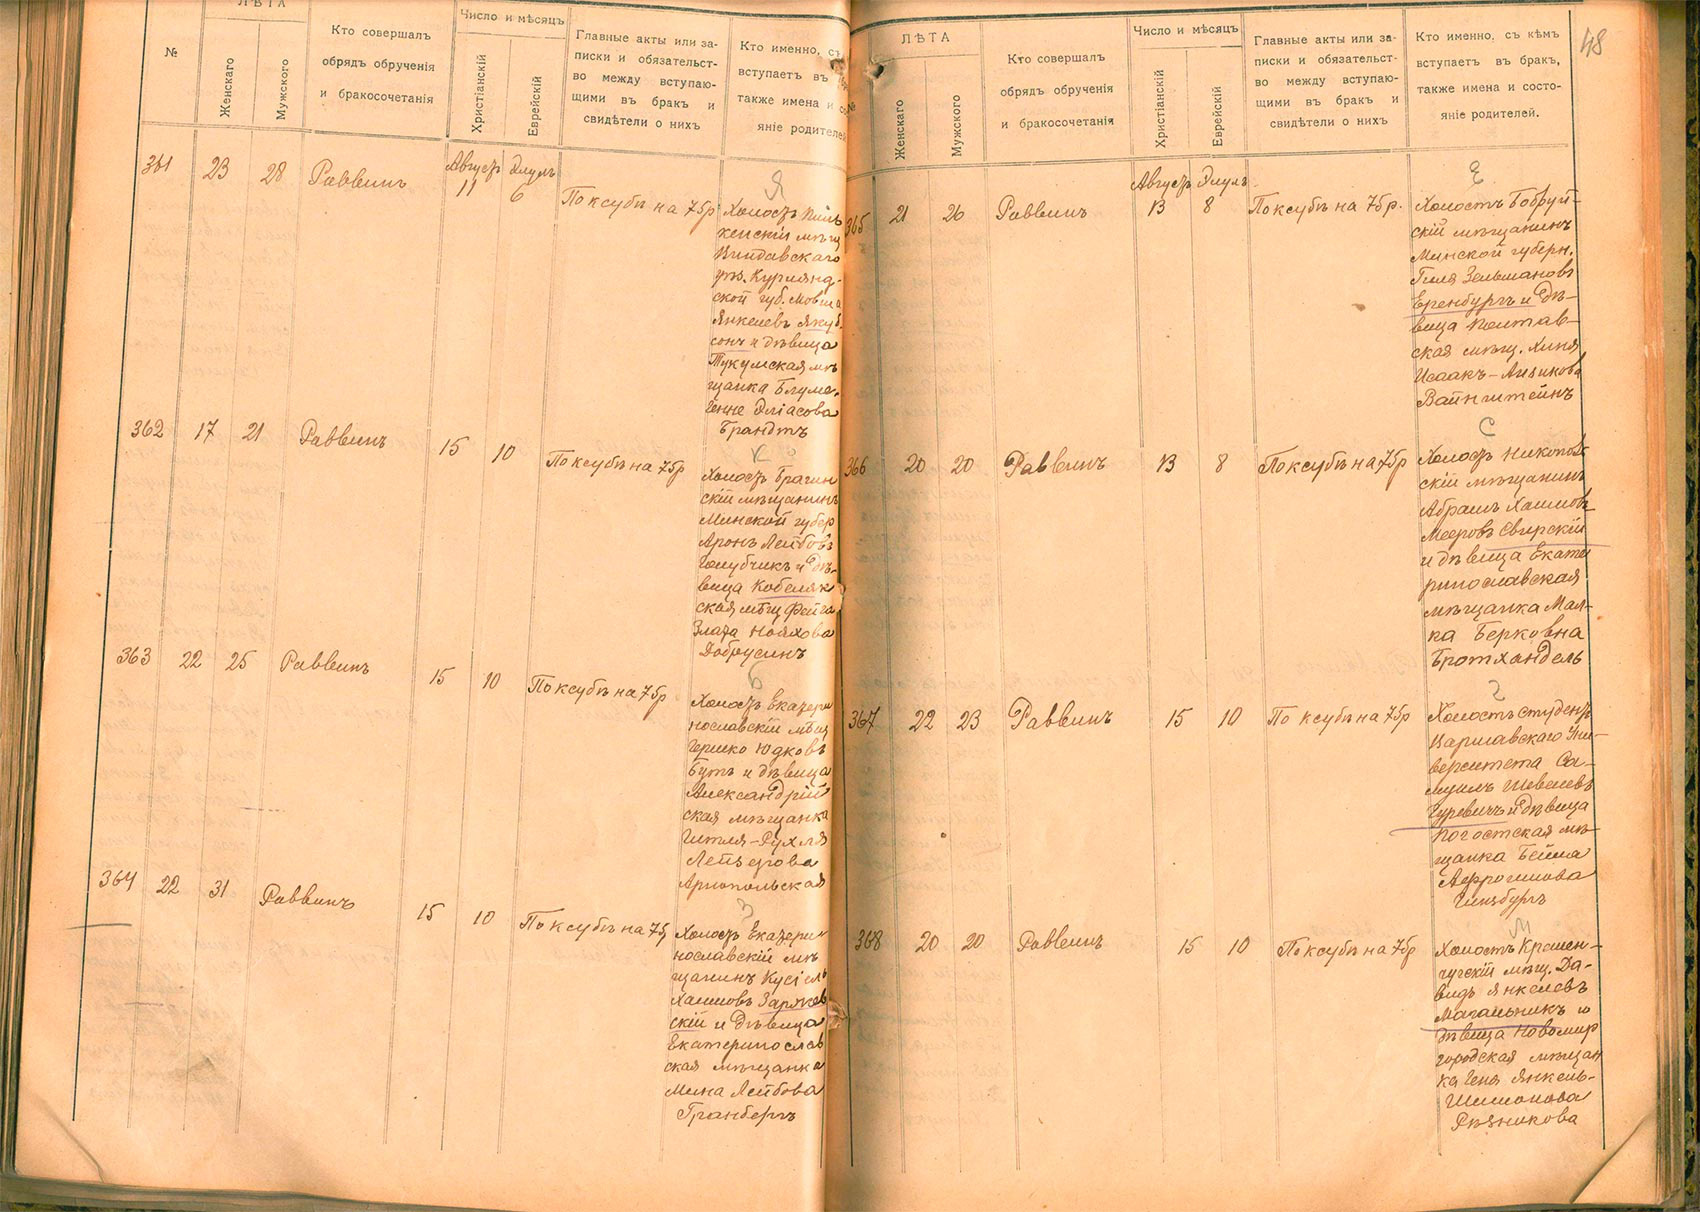 ЛѢТА
№
Женскаго
Мужского
Кто совершалъ
обрядъ обрученія
и бракосочетанія
Число и мѣсяцъ
Христіанскій
Еврейскій
Главные акты или за-
писки и обязательст-
во между вступаю-
щими въ бракъ и
свидѣтели о нихъ
Кто именно, съ
вступаетъ въ
также имена и со
яніе родителей
361 23 28 Раввинъ
Августъ Элулъ
11 6
По ксубѣ на 75р
Я
Холостъ Пиль
тенскій мѣщ
Виндавскаго
уѣз. Курлянд-
ской губ. Мовша
Янкелевъ Якуб-
сонъ и дѣвица
Тукумская мѣ
щанка Блуме-
Генне Эліасова
Брандтъ
362 17 21 Раввинъ 15 10 По ксубѣ на 75р
Холостъ Брагин
скій мѣщанинъ
Минской губер
Аронъ Лейбовъ
Голубчикъ и дѣ-
вица Кобеляк
ская мѣщ Фейга
Злата Нояхова
Добрусинъ
363 22 25 Раввинъ 15 10 По ксубѣ на 75р
Б
Холостъ Екатери
нославскій мѣщ
Гершко Юдковъ
Бутъ и дѣвица
Александрій
ская мѣщанка
Гитля-Рухля
Лейзерова
Арнопольская
364 22 31 Раввинъ 15 10 По ксубѣ на 75р
З
Холостъ Екатери
нославскій мѣ
щанинъ Кусіель
Хаимовъ Заржев
скій и дѣвица
Екатеринослав
ская мѣщанка
Мина Лейбова
Гранбергъ
48
ЛѢТА
№
Женскаго
Мужского
Кто совершалъ
обрядъ обрученія
и бракосочетанія
Число и мѣсяцъ
Христіанскій
Еврейскій
Главные акты или за-
писки и обязательст-
во между вступаю-
щими въ бракъ и
свидѣтели о нихъ
Кто именно, съ кѣмъ
вступаетъ въ бракъ,
также имена и состо-
яніе родителей.
365 21 26 Раввинъ
Августъ Элулъ
13 8
По ксубѣ на 75р.
Е
Холостъ Бобруй-
скій мѣщанинъ
Минской губерн.
Гиля Зельмановъ
Еренбургъ и дѣ-
вица Полтав-
ская мѣщ. Хиня
Исаакъ-Айзикова
Вайнштейнъ
366 20 20 Раввинъ 13 8 По ксубѣ на 75р
С
Холостъ Никополь
скій мѣщанинъ
Абрамъ Хаимов
Мееровъ Свирскій
и дѣвица Екате
ринославская
мѣщанка Мал-
ка Берковна
Бротхандель
367 22 23 Раввинъ 15 10 По ксубѣ на 75р
Г
Холостъ студентъ
Варшавскаго Уни-
верситета Са-
муилъ Шевелевъ
Гуревичъ и дѣвица
Погостская мѣ-
щанка Бейла
Лейзбургъ
368 20 20 Раввинъ 15 10 По ксубѣ на 75р
М
Холостъ Кремен-
чугскій мѣщ. Да-
видъ Янкелевъ
Магальникъ и
дѣвица Новомир
городская мѣщан
ка Геня Янкель-
Шимонова
Рѣзникова